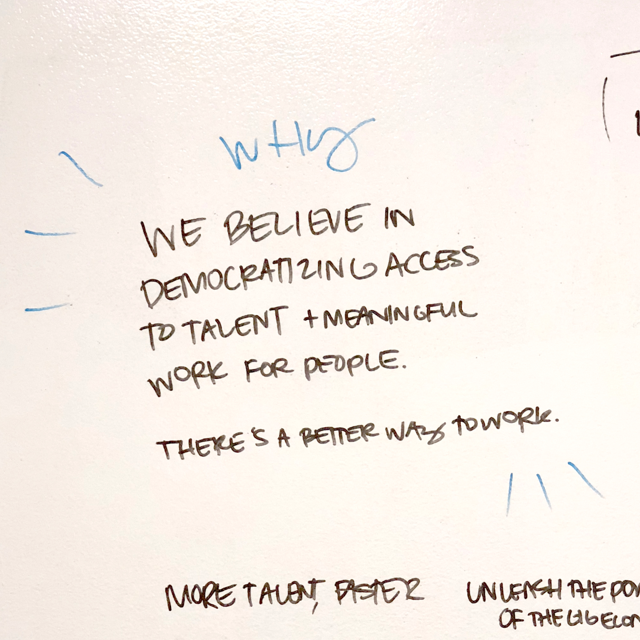 WHY
WE BELIEVE IN
DEMOCRATIZING ACCESS
TO TALENT + MEANINGFUL
WORK FOR PEOPLE.
THERE'S A BETTER WAY TO WORK.
MORE TALENT, FASTER
UNLEASH THE
OF THE GIG